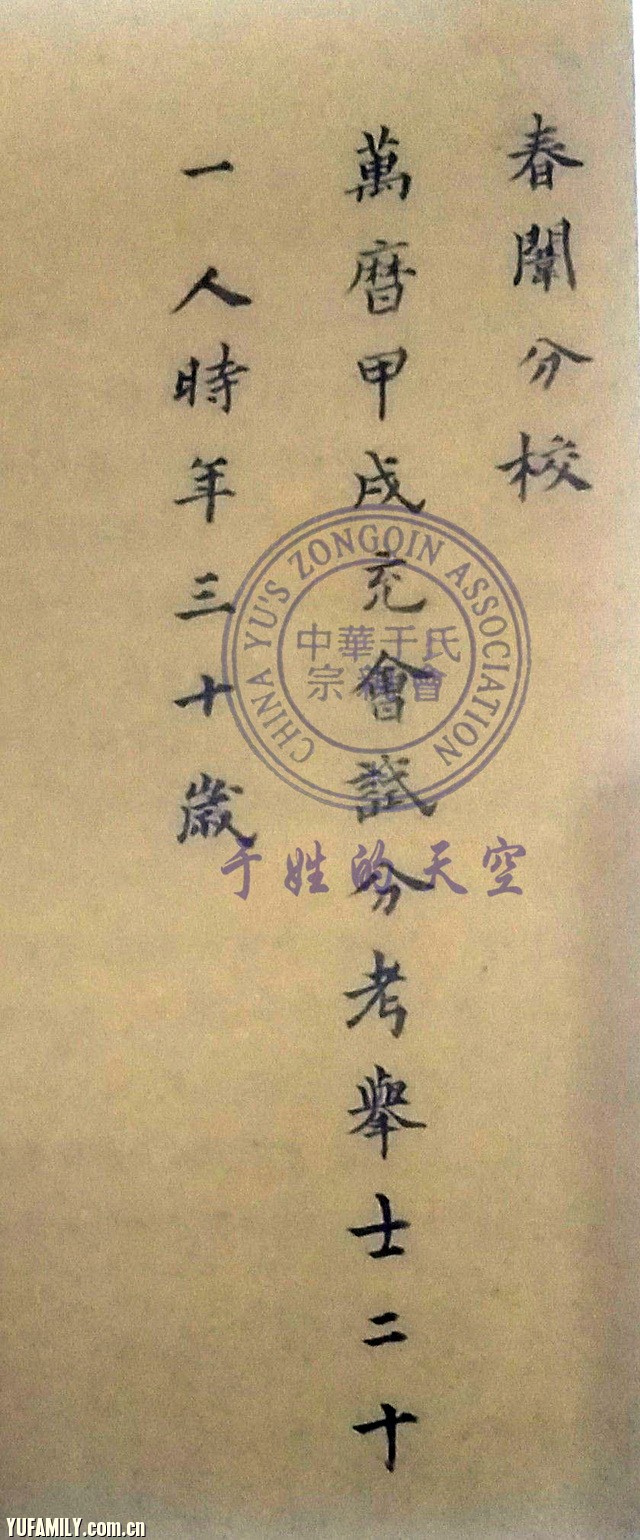 春闈分校
萬曆甲戌充會試分考舉士二十
一人時年三十歲
CHINA YU'S ZONGQIN ASSOCIATION
中華于氏
宗親會
于姓的天空
YUFAMILY.com.cn